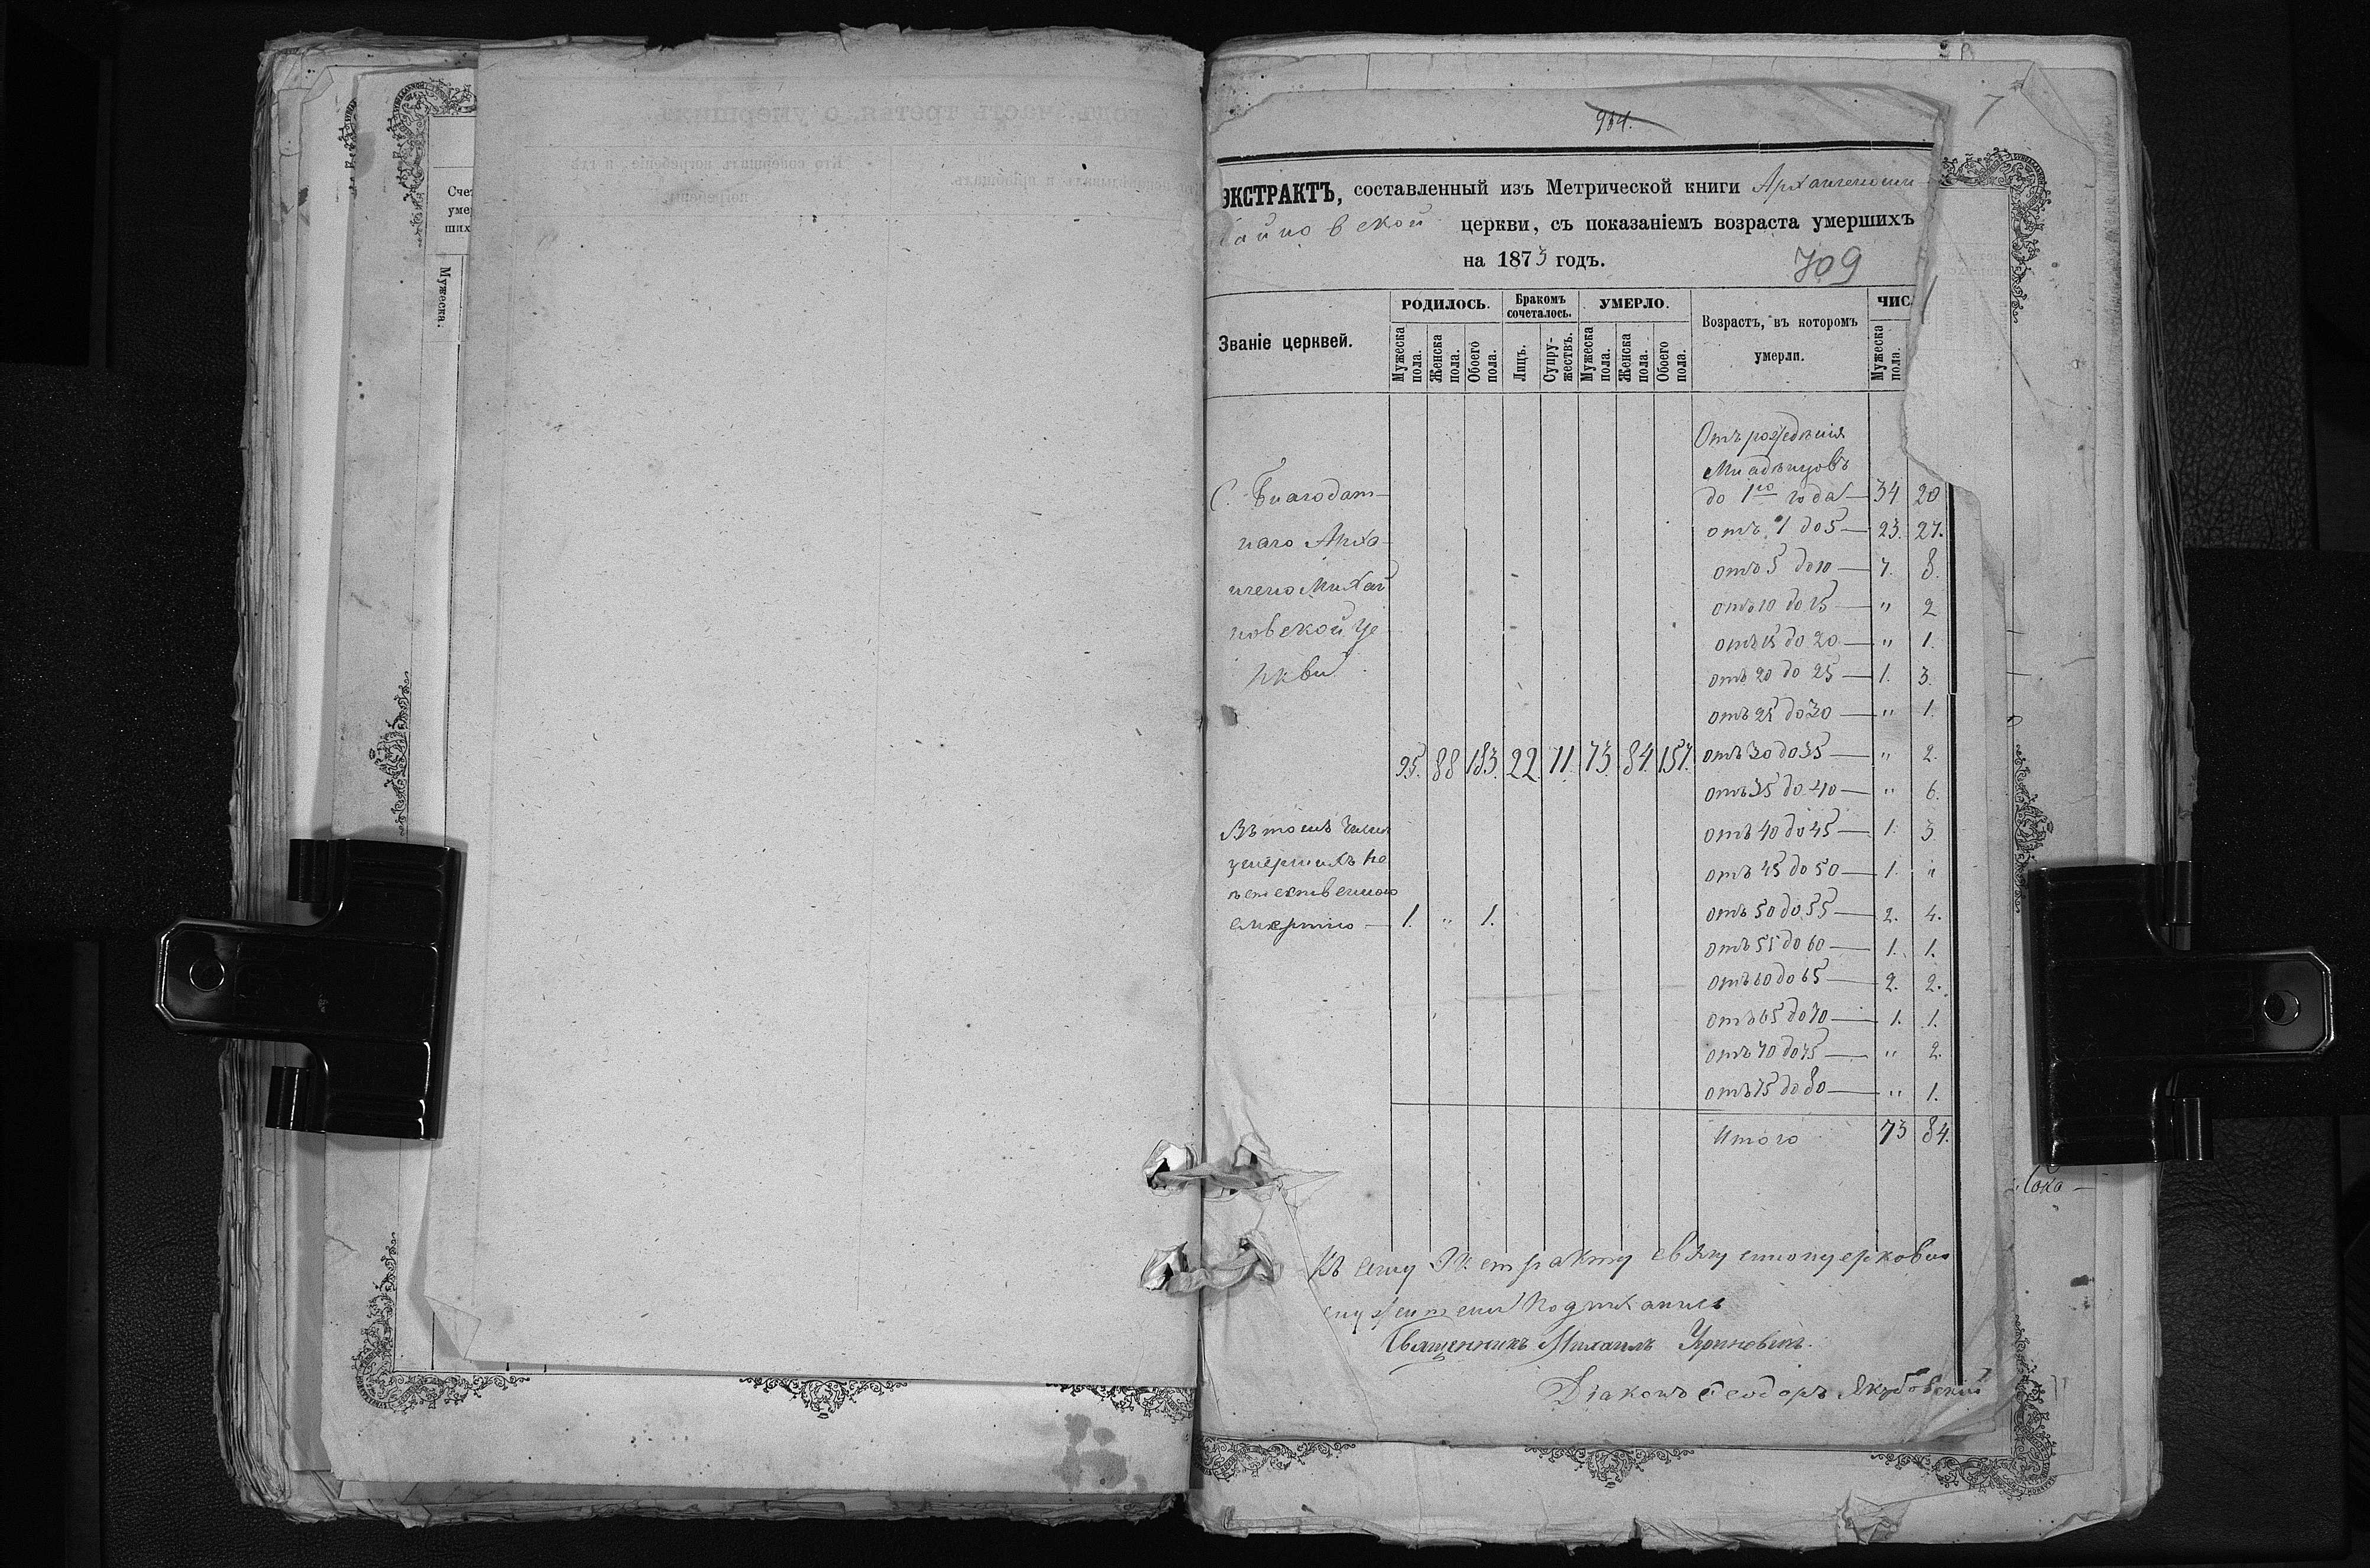 Счет
умер
ших
Мужеска.
964.
ЭКСТРАКТЪ, составленный изъ Метрической книги Архангеломи-
хайловской церкви, съ показаніемъ возраста умершихъ
на 1873 годъ.
709
Званіе церквей.
РОДИЛОСЬ.
Бракомъ сочеталось.
УМЕРЛО.
Возрастъ, въ которомъ умерли.
ЧИС
Мужеска пола.
Женска пола.
Обоего пола.
Лицъ.
Супружествъ.
Мужеска пола.
Женска пола.
Обоего пола.
Мужеска пола.
Отъ рожденія
Младенцовъ
до 1го года — 34 20
отъ 1 до 5 — 23. 27.
отъ 5 до 10 — 7. 8.
отъ 10 до 15 — " 2
отъ 15 до 20 — " 1.
отъ 20 до 25 — 1. 3.
отъ 25 до 30 — " 1.
отъ 30 до 35 — " 2.
отъ 35 до 40 — " 6.
отъ 40 до 45 — 1. 3
отъ 45 до 50 — 1. "
отъ 50 до 55 — 2. 4.
отъ 55 до 60 — 1. 1.
отъ 60 до 65 — 2. 2.
отъ 65 до 70 — 1. 1.
отъ 70 до 75 — " 2.
отъ 75 до 80 — " 1.
Итого 73 84.
С. Благодат-
наго Арха-
нгело Михай
ловской Це
ркви
95. 88 183. 22 11. 73. 84. 157.
Въ томъ числѣ
умершихъ не
естественною
смертію — 1. " 1.
Къ сему Экстракту священноцерковно
служители подписались
Священникъ Михаилъ
Діаконъ Ѳеодоръ Якубовскій